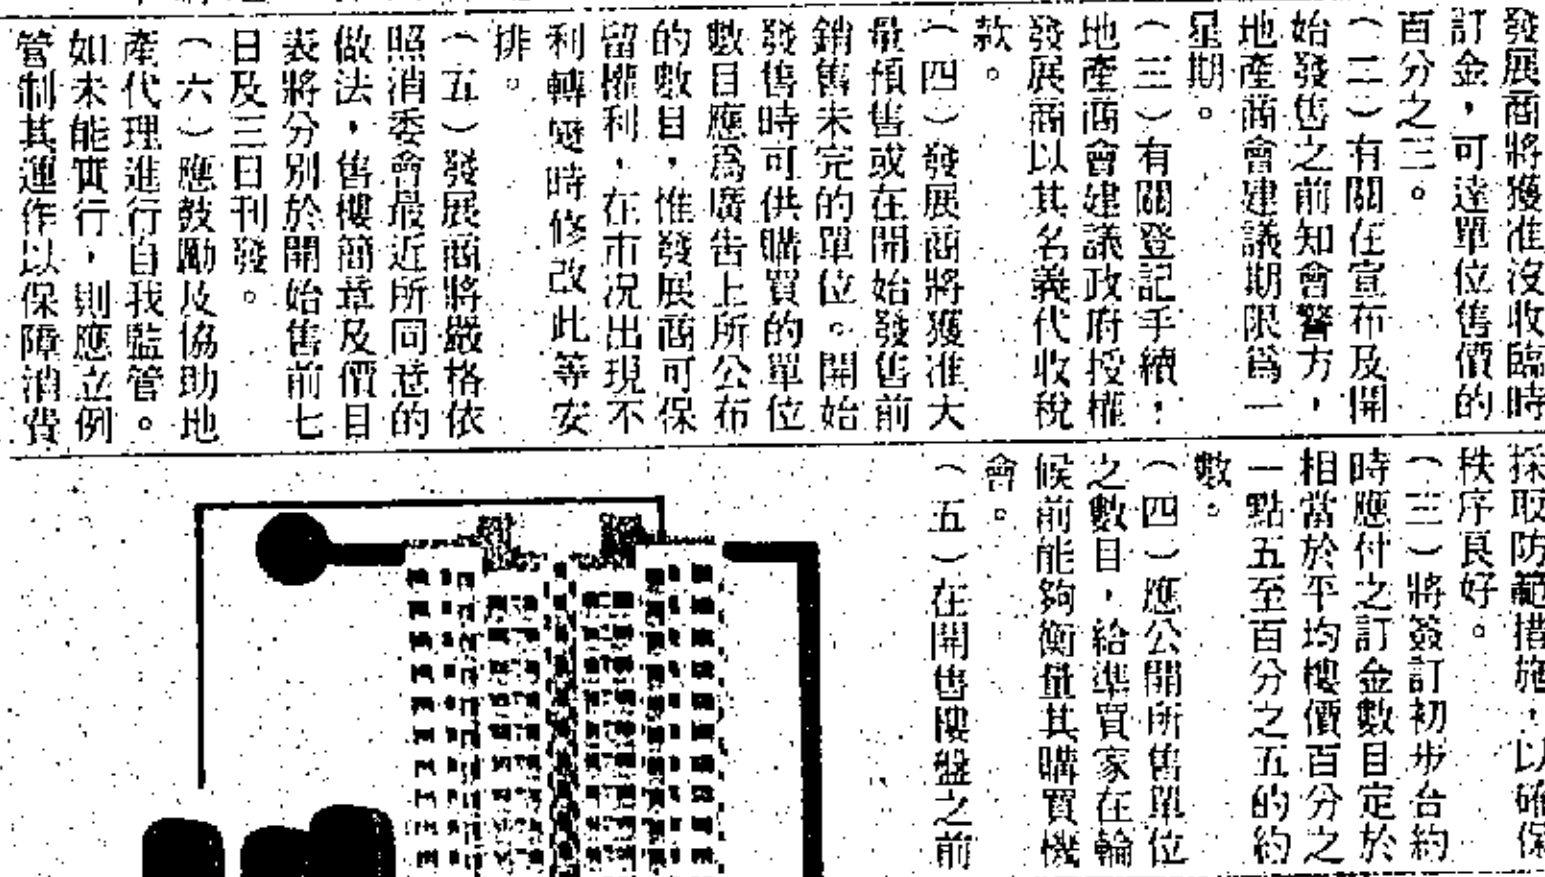 發展商將獲准沒收臨時
訂金，可達單位售價的
百分之三。
（二）有關在宣布及開
始發售之前知會警方，
地產商會建議期限爲一
星期。
（三）有關登記手續，
地產商會建議政府授權
發展商以其名義代收稅
款。
（四）發展商將獲准大
量預售或在開始發售前
銷售未完的單位。開始
發售時可供購買的單位
數目應爲廣告上所公布
的數目，惟發展商可保
留權利，在市况出現不
利轉變時修改此等安
排。
（五）發展商將嚴格依
照消委會最近所同意的
做法，售樓簡章及價目
表將分別於開始售前七
日及三日刊發。
（六）應鼓勵及協助地
產代理進行自我監管。
如未能實行，則應立例
管制其運作以保障消費
採取防範措施，以確保
秩序良好。
（三）將簽訂初步合約
時應付之訂金數目定於
相當於平均樓價百分之
一點五至百分之五的約
數。
（四）應公開所售單位
之數目，給準買家在輪
候前能夠衡量其購買機
會。
（五）在開售樓盤之前